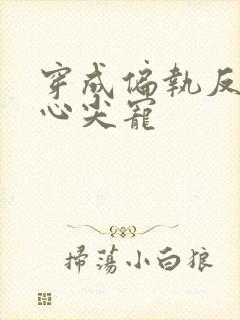 穿成偏執反
心尖寵
掃蕩小白狼